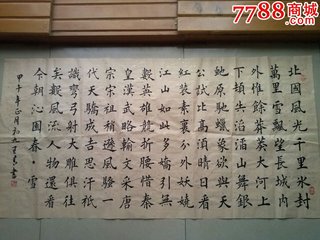 7788商城
.com
北國風光千里冰封
萬里雪飄望長城內
外惟餘莽莽大河上
下頓失滔滔山舞銀
蛇原馳蠟象欲與天
公試比高須晴日看
紅裝素裹分外妖嬈
江山如此多嬌引無
數英雄競折腰惜秦
皇漢武略輸文采唐
宗宋祖稍遜風騷一
代天驕成吉思汗祗
識彎弓射大雕俱往
矣數風流人物還看
今朝沁園春·雪
甲午年正月初六書